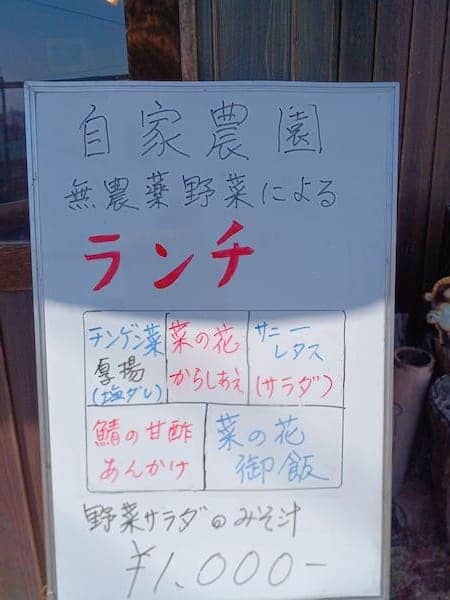 自家農園
無農薬野菜による
ランチ
チンゲン菜
厚揚
(塩ダレ)
菜の花
からしあえ
サニー
レタス
(サラダ)
鯖の甘酢
あんかけ
菜の花
御飯
野菜サラダ@みそ汁
¥1,000-